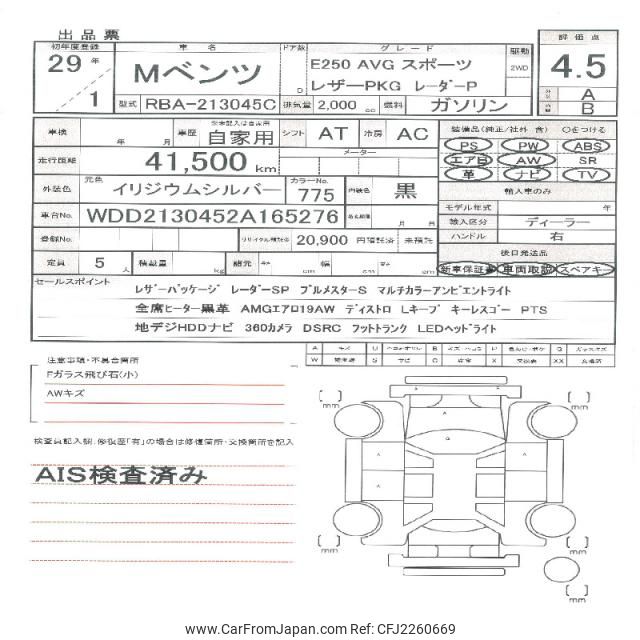 出品票
初年度登録
29 年
1
車名
Mベンツ
ドア数
D
グレード
E250 AVG スポーツ
レザーPKG レーダーP
駆動
2WD
評価点
4.5
A
B
型式
RBA-213045C
排気量
2,000
cc
燃料
ガソリン
車検
年 月
車歴
自家用
シフト
AT
冷房
AC
走行距離
41,500 km
メーター
装備品(純正/社外 含) ○をつける
PS PW ABS
エアB AW SR
革 ナビ TV
外装色
元色
イリジウムシルバー
カラーNo.
775
内装色
黒
輸入車のみ
モデル年式
年
輸入区分
ディーラー
ハンドル
右
車台No.
WDD2130452A165276
月 日
登録No.
リサイクル預託金
20,900 円預託済 未預託
後日発送品
新車保証書 車両取説 スペアキー
定員
5 人
積載量
kg
諸元
cm
幅
cm
cm
セールスポイント
レザーパッケージ レーダーSP プルメスターS マルチカラーアンビエントライト
全席ヒーター黒革 AMGエアロ19AW ディストロ Lキープ キーレスゴー PTS
地デジHDDナビ 360カメラ DSRC フットトランク LEDヘッドライト
A キズ U B P G
W S サビ C 腐食 X XX
注意事項・不具合箇所
Fガラス飛び石(小)
AWキズ
検査員記入欄.修復歴「有」の場合は修復箇所・交換箇所を記入
AIS検査済み
mm
mm
mm
mm
mm
www.CarFromJapan.com Ref: CFJ2260669